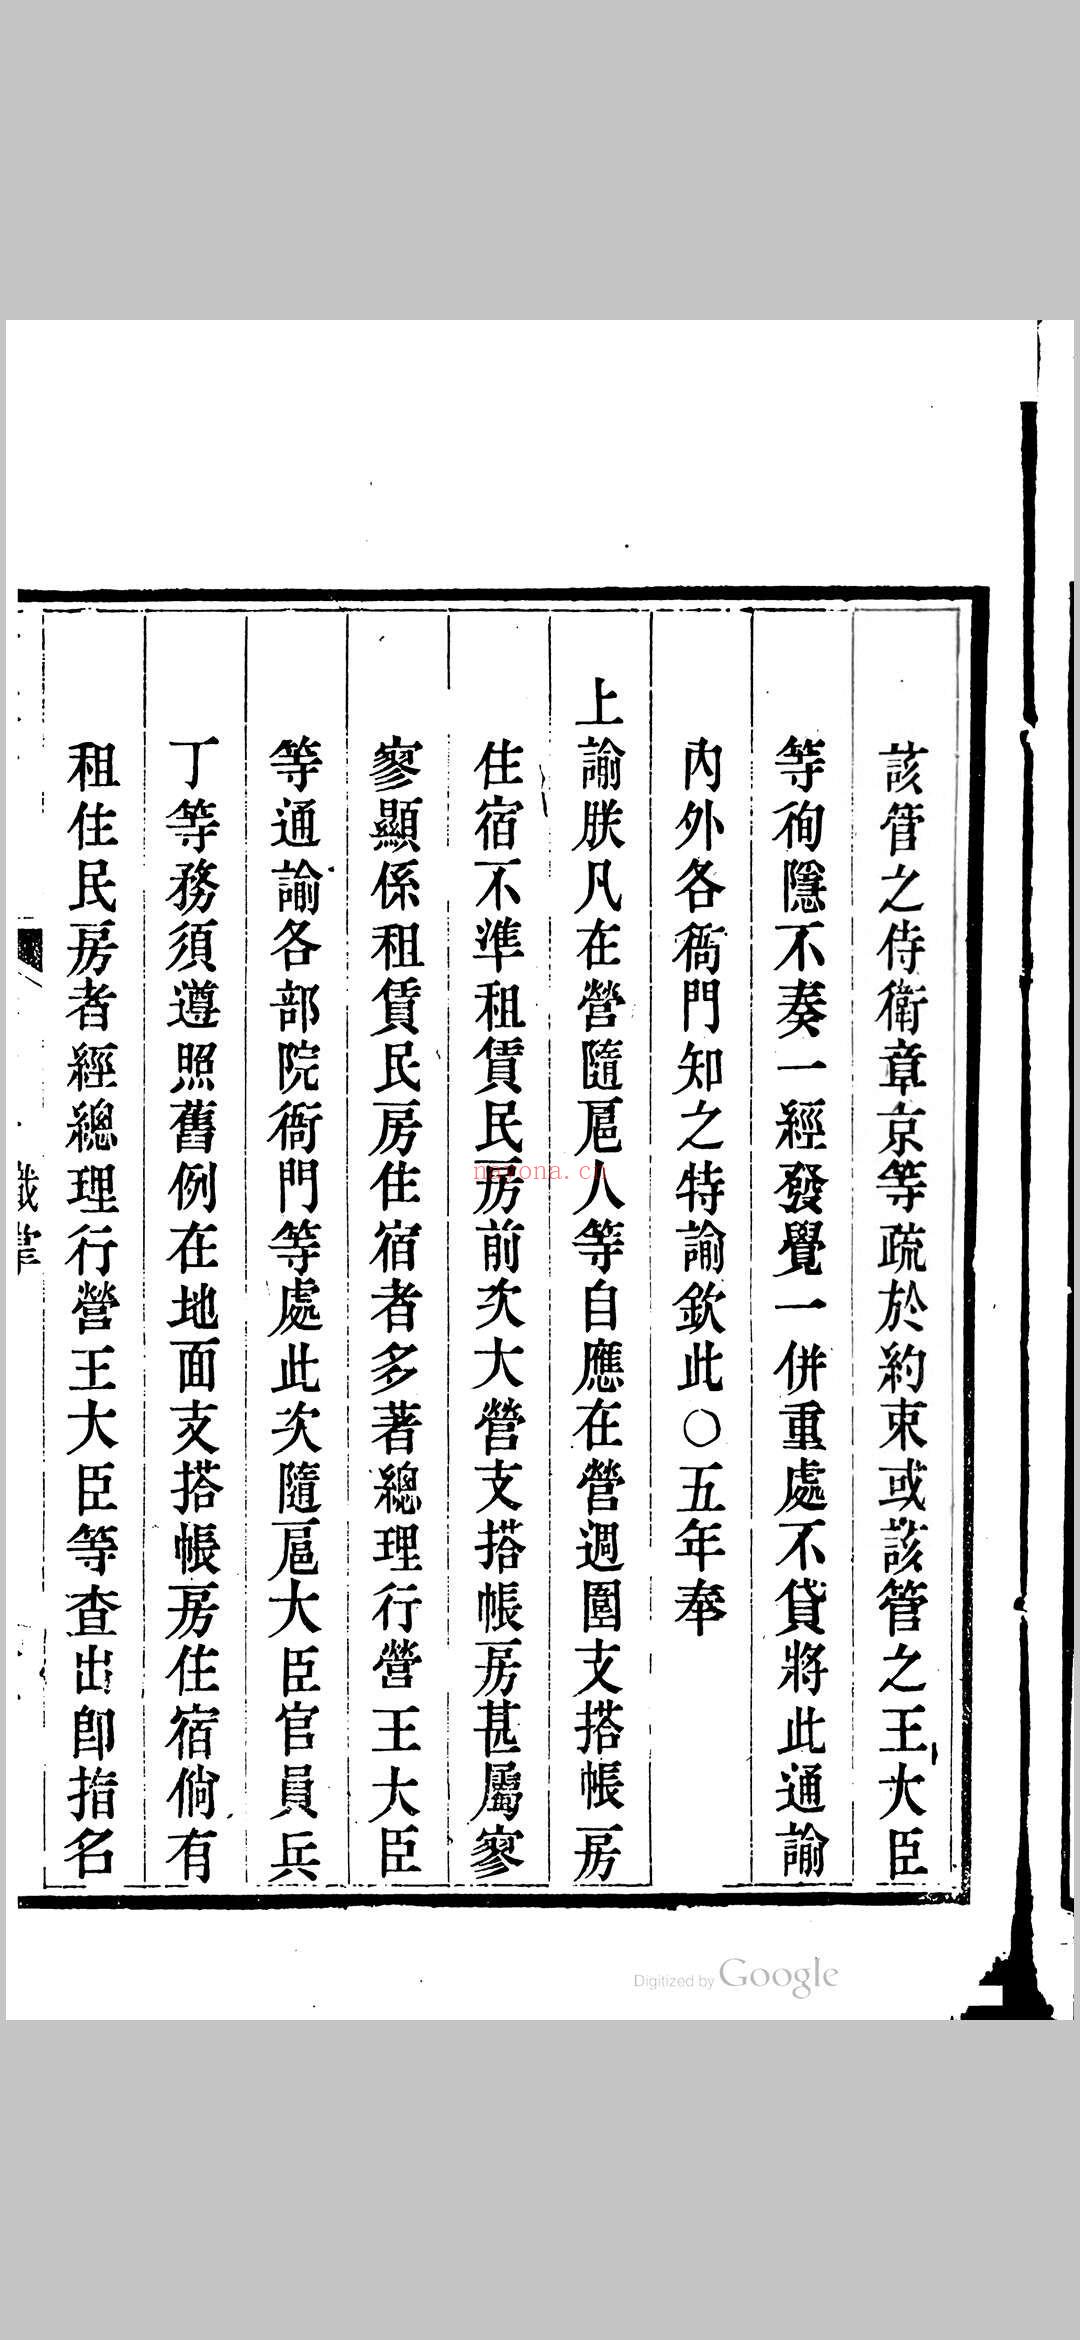 該管之侍衞章京等疏於約束或該管之王大臣
等徇隱不奏一經發覺一併重處不貸將此通諭
內外各衙門知之特諭欽此〇五年奉
上諭朕凡在營隨扈人等自應在營週圍支搭帳房
住宿不準租賃民房前次大營支搭帳房甚屬寥
寥顯係租賃民房住宿者多著總理行營王大臣
等通諭各部院衙門等處此次隨扈大臣官員兵
丁等務須遵照舊例在地面支搭帳房住宿倘有
租住民房者經總理行營王大臣等查出卽指名
nayona.cn
Digitized by Google